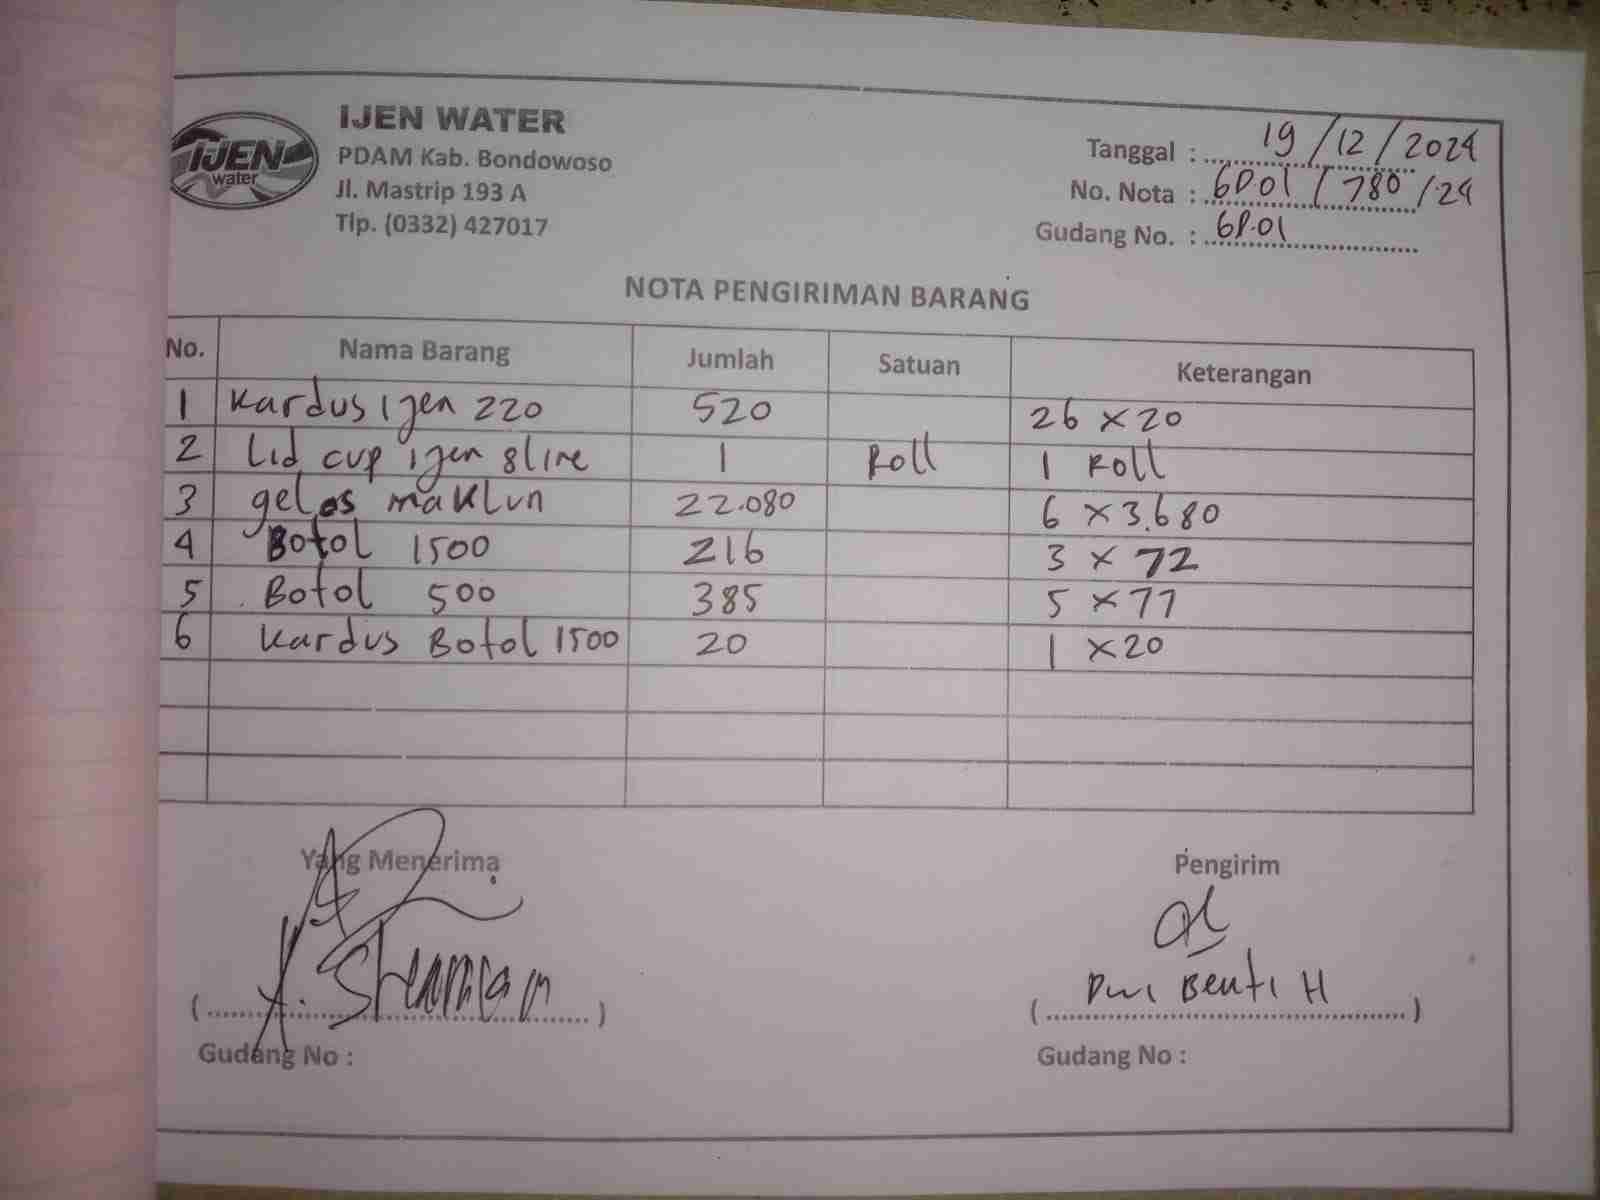 IJEN WATER
IJEN
water
PDAM Kab. Bondowoso
Jl. Mastrip 193 A
Tlp. (0332) 427017
Tanggal : 19/12/2024
No. Nota : 6D01/780/24
Gudang No. : 6D.01
NOTA PENGIRIMAN BARANG
No. Nama Barang Jumlah Satuan Keterangan
1 Kardus ijen 220 520 26 x 20
2 Lid cup ijen 1 Roll 1 Roll
3 gelas maklun 22.080 6 x 3.680
4 Botol 1500 216 3 x 72
5 Botol 500 385 5 x 77
6 Kardus Botol 1500 20 1 x 20
Yang Menerima Pengirim
( ) ( H )
Gudang No : Gudang No :